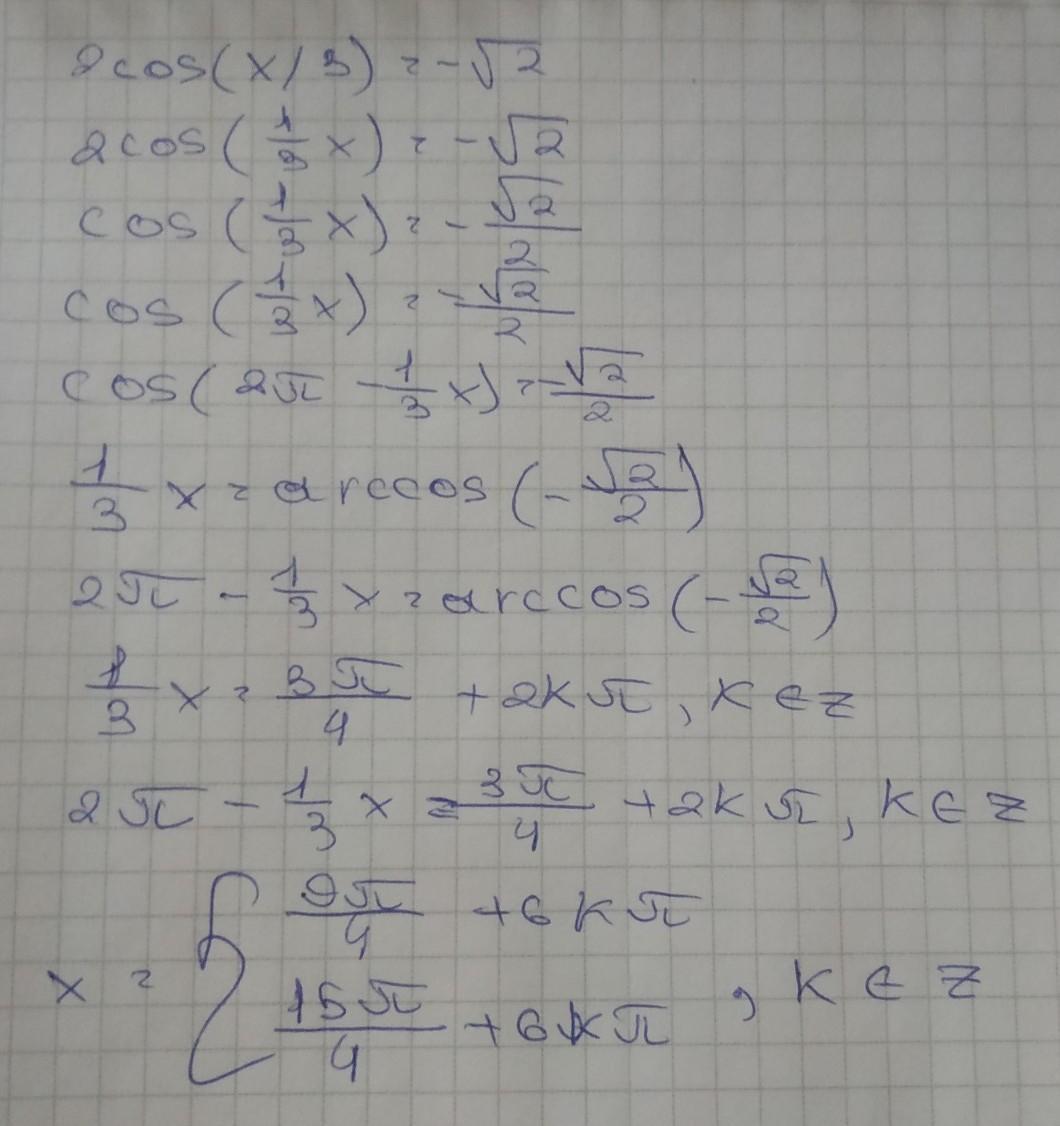 2cos(x/3) = -√2
2cos(1/3 x) = -√2
cos(1/3 x) = -√2/2
cos(1/3 x) = -√2/2
cos(2π - 1/3 x) = -√2/2
1/3 x = arccos(-√2/2)
2π - 1/3 x = arccos(-√2/2)
1/3 x = 3π/4 + 2kπ, k ∈ z
2π - 1/3 x = 3π/4 + 2kπ, k ∈ z
x = { 9π/4 + 6kπ
15π/4 + 6kπ , k ∈ z